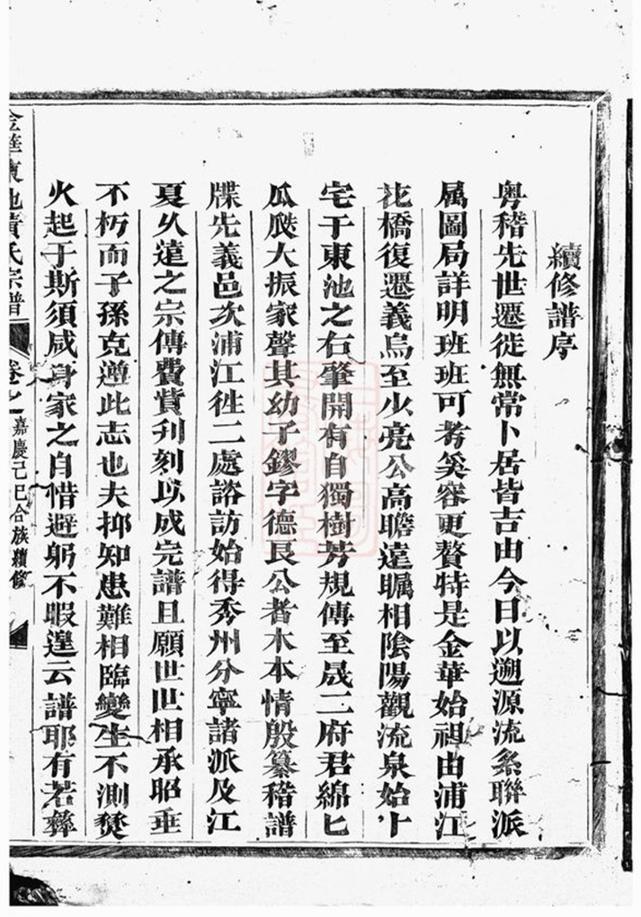 續修譜序
粵稽先世遷徙無常卜居皆吉由今日以遡源流糸聯派
属圖局詳明班班可考奚容更贅特是金華始祖由浦江
花橋復遷義烏至少亮公高瞻遠矚相陰陽觀流泉始卜
宅于東池之右肇開有自獨樹芳規傳至晟二府君綿匕
瓜瓞大振家聲其幼子鏐字德良公者木本情殷纂稽譜
牒先義邑次浦江徃二處諮訪始得秀州分寧諸派及江
夏久遠之宗傳費貲刋刻以成完譜且願世世相承昭垂
不朽而子孫克遵此志也夫抑知患難相臨變生不測焚
火起于斯須咸身家之自惜避躬不暇遑云譜耶有若彝
金華東池黃氏宗譜
卷之
嘉慶己巳合族續修